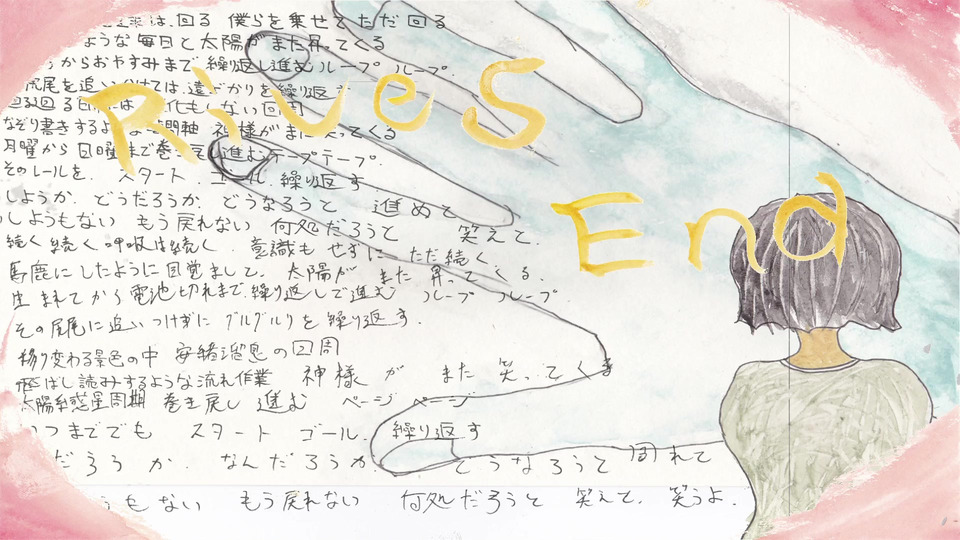 は、回る 僕らを乗せてただ回る
ような毎日と太陽がまた昇ってくる
からおやすみまで繰り返し進むループ ループ.
尾を追いかけては、遠ざかりを繰り返す
しない
なぞり書きするよ 神様がまた ってくる
月曜から日曜まで巻き し進むテープテープ.
そのレールを. スタート.ゴール.繰り返す.
しようか. どうだろうか. どうなろうと 進めて
しようもない もう戻れない 何処だろうと 笑えて.
続く続く呼吸は続く. 意識もせずに ただ続く.
馬鹿にしたように目覚まして. 太陽が また昇ってくる.
生まれてから電池切れまで.繰り返しで進む ループ ループ.
その尾尾に追いつけずに グルグルりを繰り返す.
移り変わる景色の中 安緒溜息の回周
飛ばし読みするような流れ作業 神様が また笑ってくる
太陽系惑星周期 巻き戻し進む ページ ページ
いつまででも スタート ゴール. 繰り返す
だろうか. なんだろうか. どうなろうと 回れて
もない もう戻れない 何処だろうと 笑えて. 笑うよ.
RiveS
End